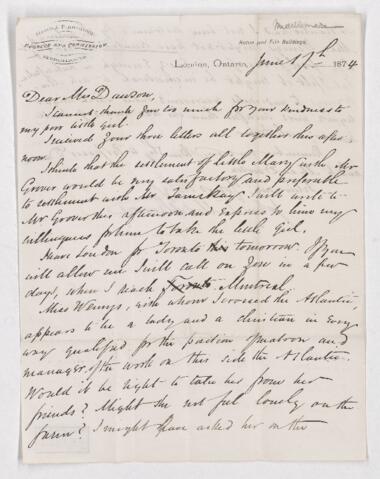 Middlemore
London, Ontario, June 17th 1874
Dear Mrs Dawson,
I cannot thank you too much for your kindness to
my poor little girl.
I received your three letters all together this after-
noon.
I think that the settlement of little Mary with Mr
Grover would be very satisfactory and preferable
to settlement with Mr I will write to
Mr Grover this afternoon and express to him my
willingness for him to take the little girl.
I leave London for Toronto tomorrow. If you
will allow me I will call on you in a few
days, when I reach Toronto Montreal.
Miss Wemys, with whom I crossed the Atlantic,
appears to be a lady and a christian in every
way qualified for the position of matron and
manager of the work on this side the Atlantic.
Would it be right to take her from her
friends? Might she not feel lonely on the
farm? I might have asked her on the